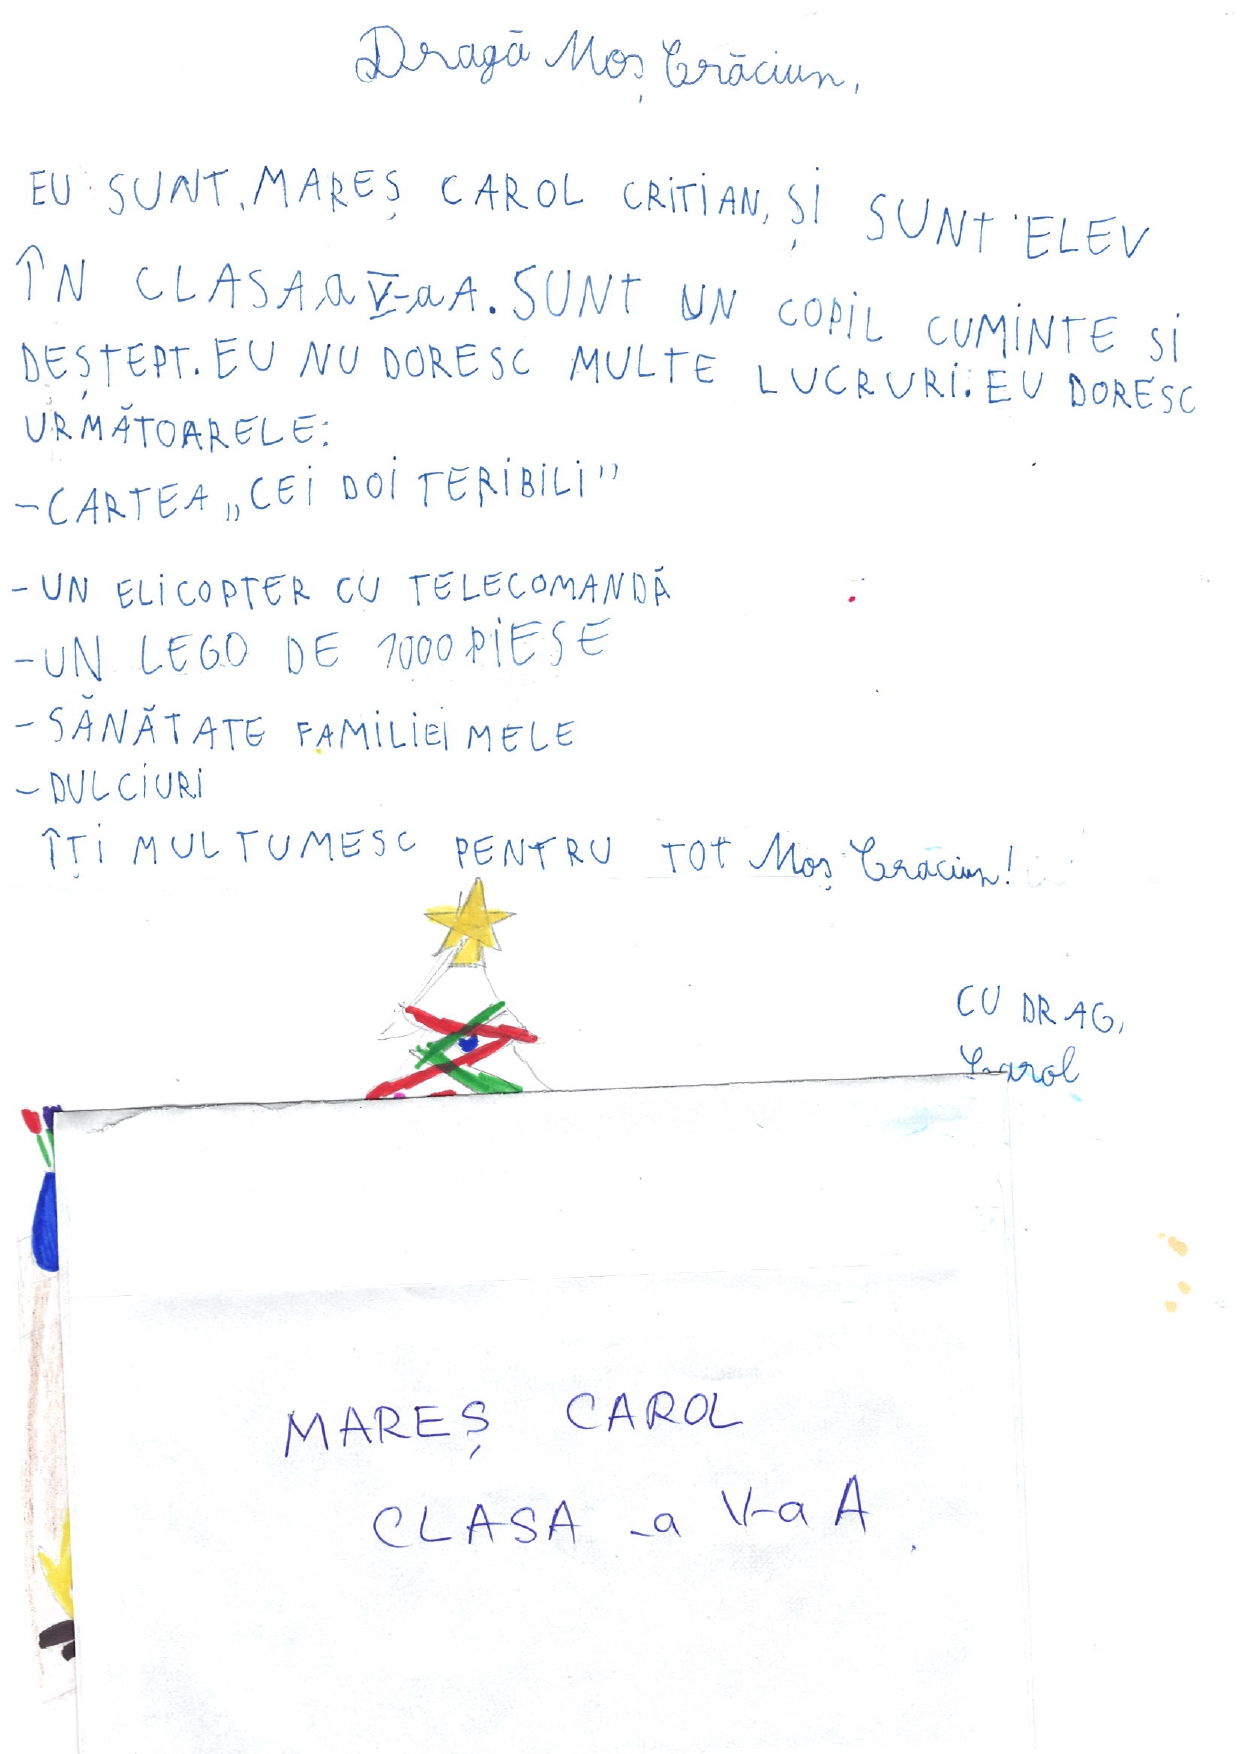 Dragă Moș Crăciun,
EU SUNT, MAREȘ CAROL CRITIAN, ȘI SUNT ELEV
ÎN CLASA a V-a A. SUNT UN COPIL CUMINTE SI
DEȘTEPT. EU NU DORESC MULTE LUCRURI. EU DORESC
URMĂTOARELE:
- CARTEA „CEI DOI TERIBILI”
- UN ELICOPTER CU TELECOMANDĂ
- UN LEGO DE 1000 PIESE
- SĂNĂTATE FAMILIEI MELE
- DULCIURI
ÎȚI MULTUMESC PENTRU TOT Moș Crăciun!
CU DRAG,
Carol
MAREȘ CAROL
CLASA -a V-a A